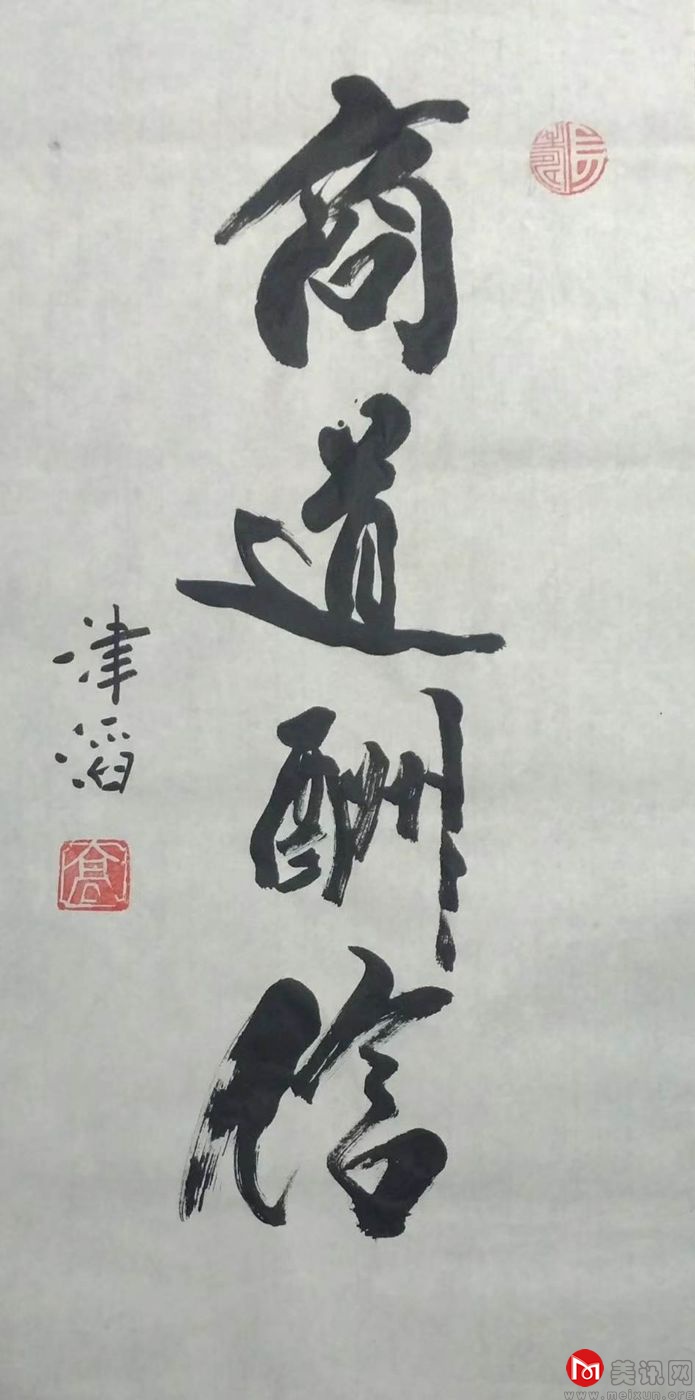 商道酬信
津滔
美讯网
www.meixun.org